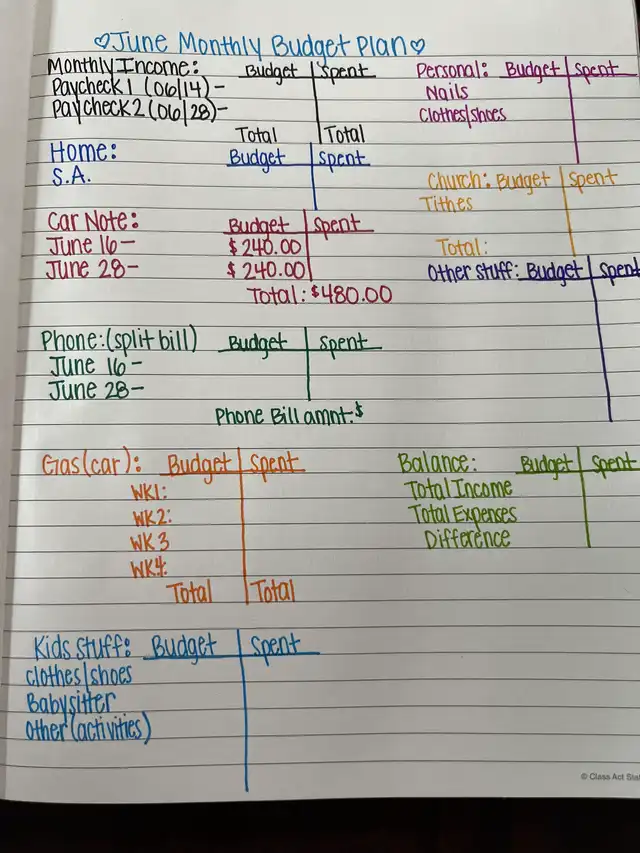 ♡June Monthly Budget Plan♡
Monthly Income: Budget Spent
Paycheck 1 (06/14)-
Paycheck 2 (06/28)-
Total Total
Home: Budget Spent
S.A.
Car Note: Budget Spent
June 16- $240.00
June 28- $240.00
Total: $480.00
Phone:(split bill) Budget Spent
June 16-
June 28-
Phone Bill amnt:$
Gas(car): Budget Spent
WK1:
WK2:
WK3
WK4:
Total Total
Kids stuff: Budget Spent
clothes/shoes
Babysitter
Other(activities)
Personal: Budget Spent
Nails
Clothes/shoes
Church: Budget Spent
Tithes
Total:
Other stuff: Budget Spent
Balance: Budget Spent
Total Income
Total Expenses
Difference
© Class Act